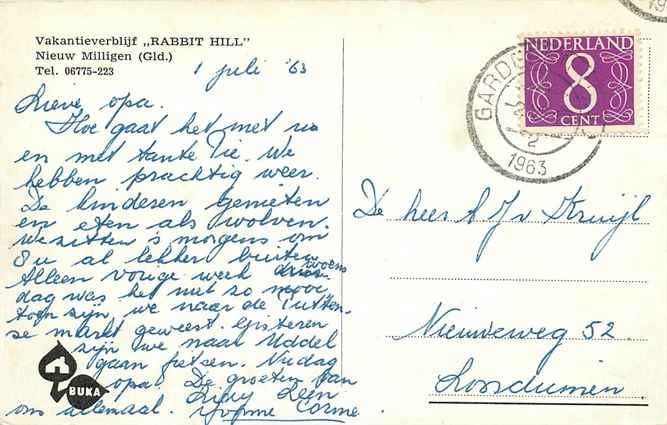 Vakantieverblijf „RABBIT HILL"
Nieuw Milligen (Gld.)
Tel. 06775-223
1 juli '63
Lieve opa.
Hoe gaat het met u
en met tante Tie. We
hebben prachtig weer.
De kinderen genieten
en eten als wolven.
We zitten 's morgens om
8 u al lekker buiten
Alleen vorige week woens
dag was het niet zo mooi
toen zijn we naar de Putten-
se markt geweest. Gisteren
zijn we naar Uddel
gaan fietsen. Nu dag
opa. De groeten van
ons allemaal. Yvonne Corine
BUKA
NEDERLAND
8
CENT
GARDE
2
1963
De heer A J v Kruijl
Nieuweweg 52
Loosduinen